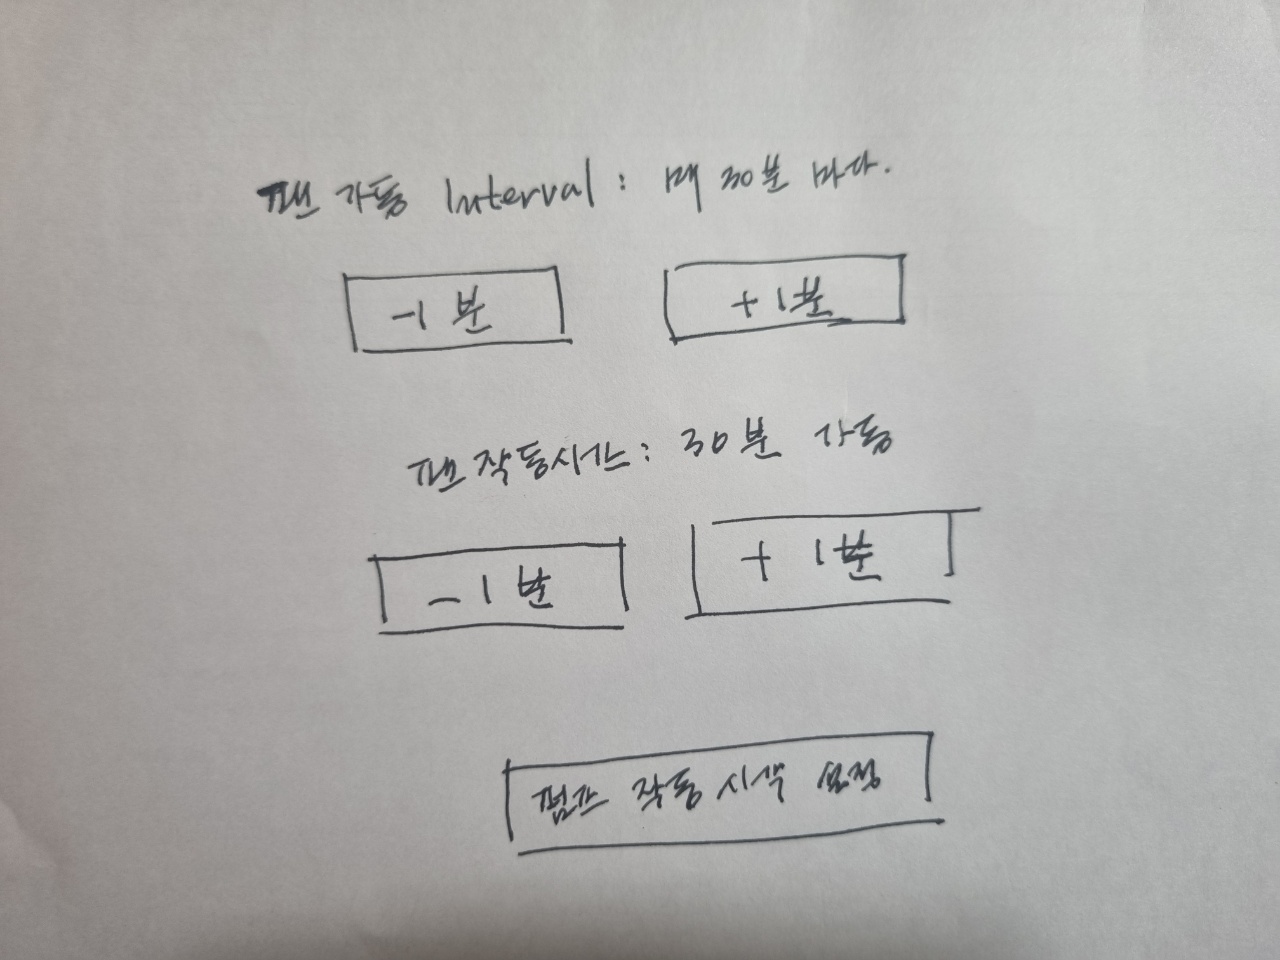 팬 가동 Interval : 매 30분 마다.
-1 분
+ 1분
팬 작동시간 : 30분 가동
- 1 분
+ 1분
펌프 작동 시각 설정